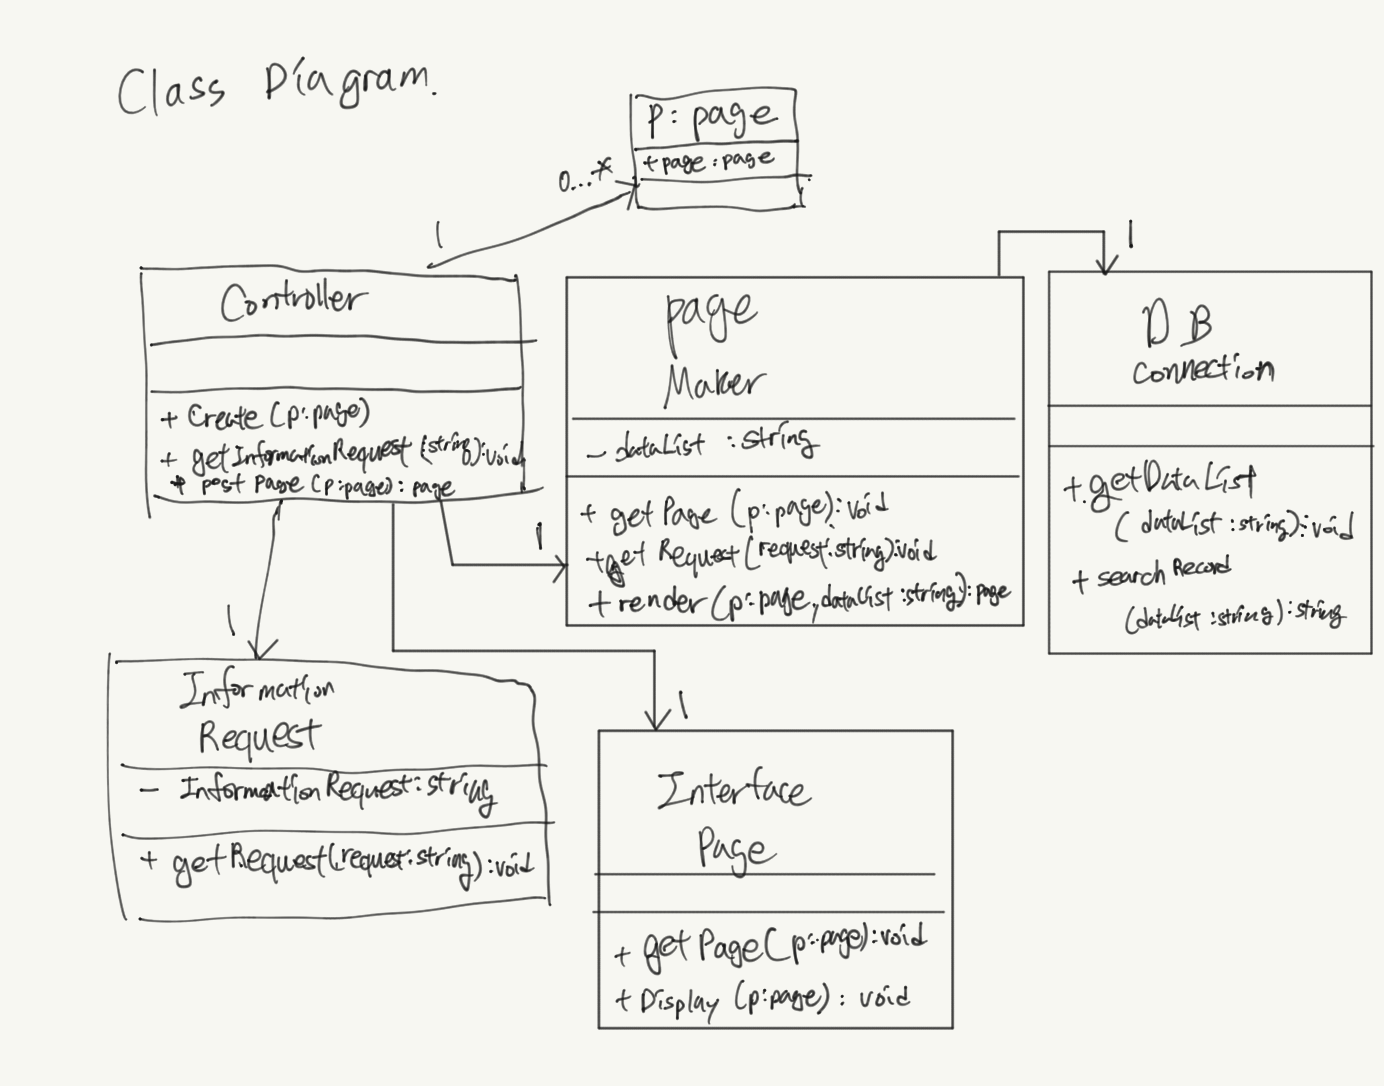 Class Diagram.
P: page
+page: page
0...*
1
1
Controller
+ Create (p: page)
+ getInformationRequest (string): void
+ post Page (p:page): page
page
Maker
- dataList : string
+ get Page (p: page): void
+get Request (request:string):void
+ render (p: page, dataList:string): page
DB
connection
+ getDataList
(dataList :string): void
+ searchRecord
(dataList :string): string
1
1
1
Information
Request
- InformationRequest: string
+ getRequest(request:string):void
Interface
Page
+ getPage (p: page): void
+ Display (p:page) : void